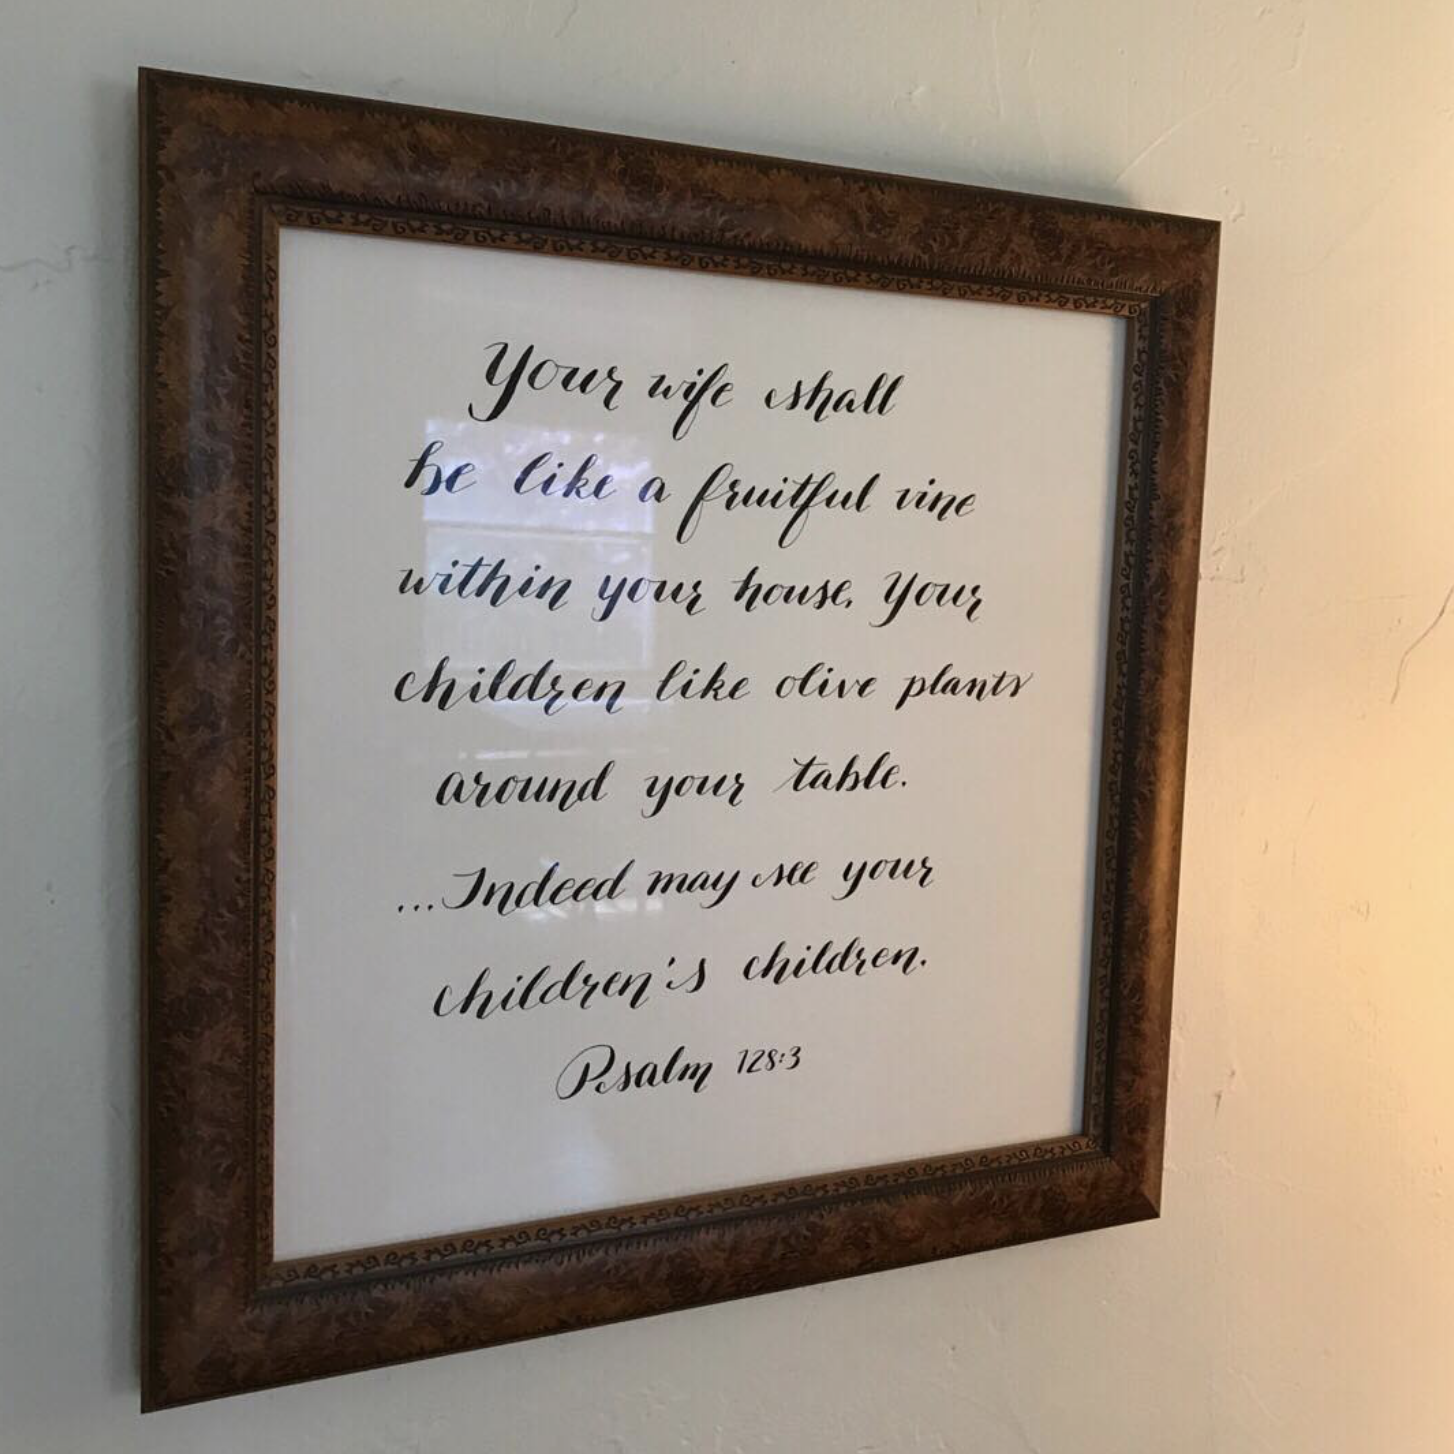 Your wife shall
be like a fruitful vine
within your house. Your
children like olive plants
around your table.
...Indeed may see your
children's children.
Psalm 128:3